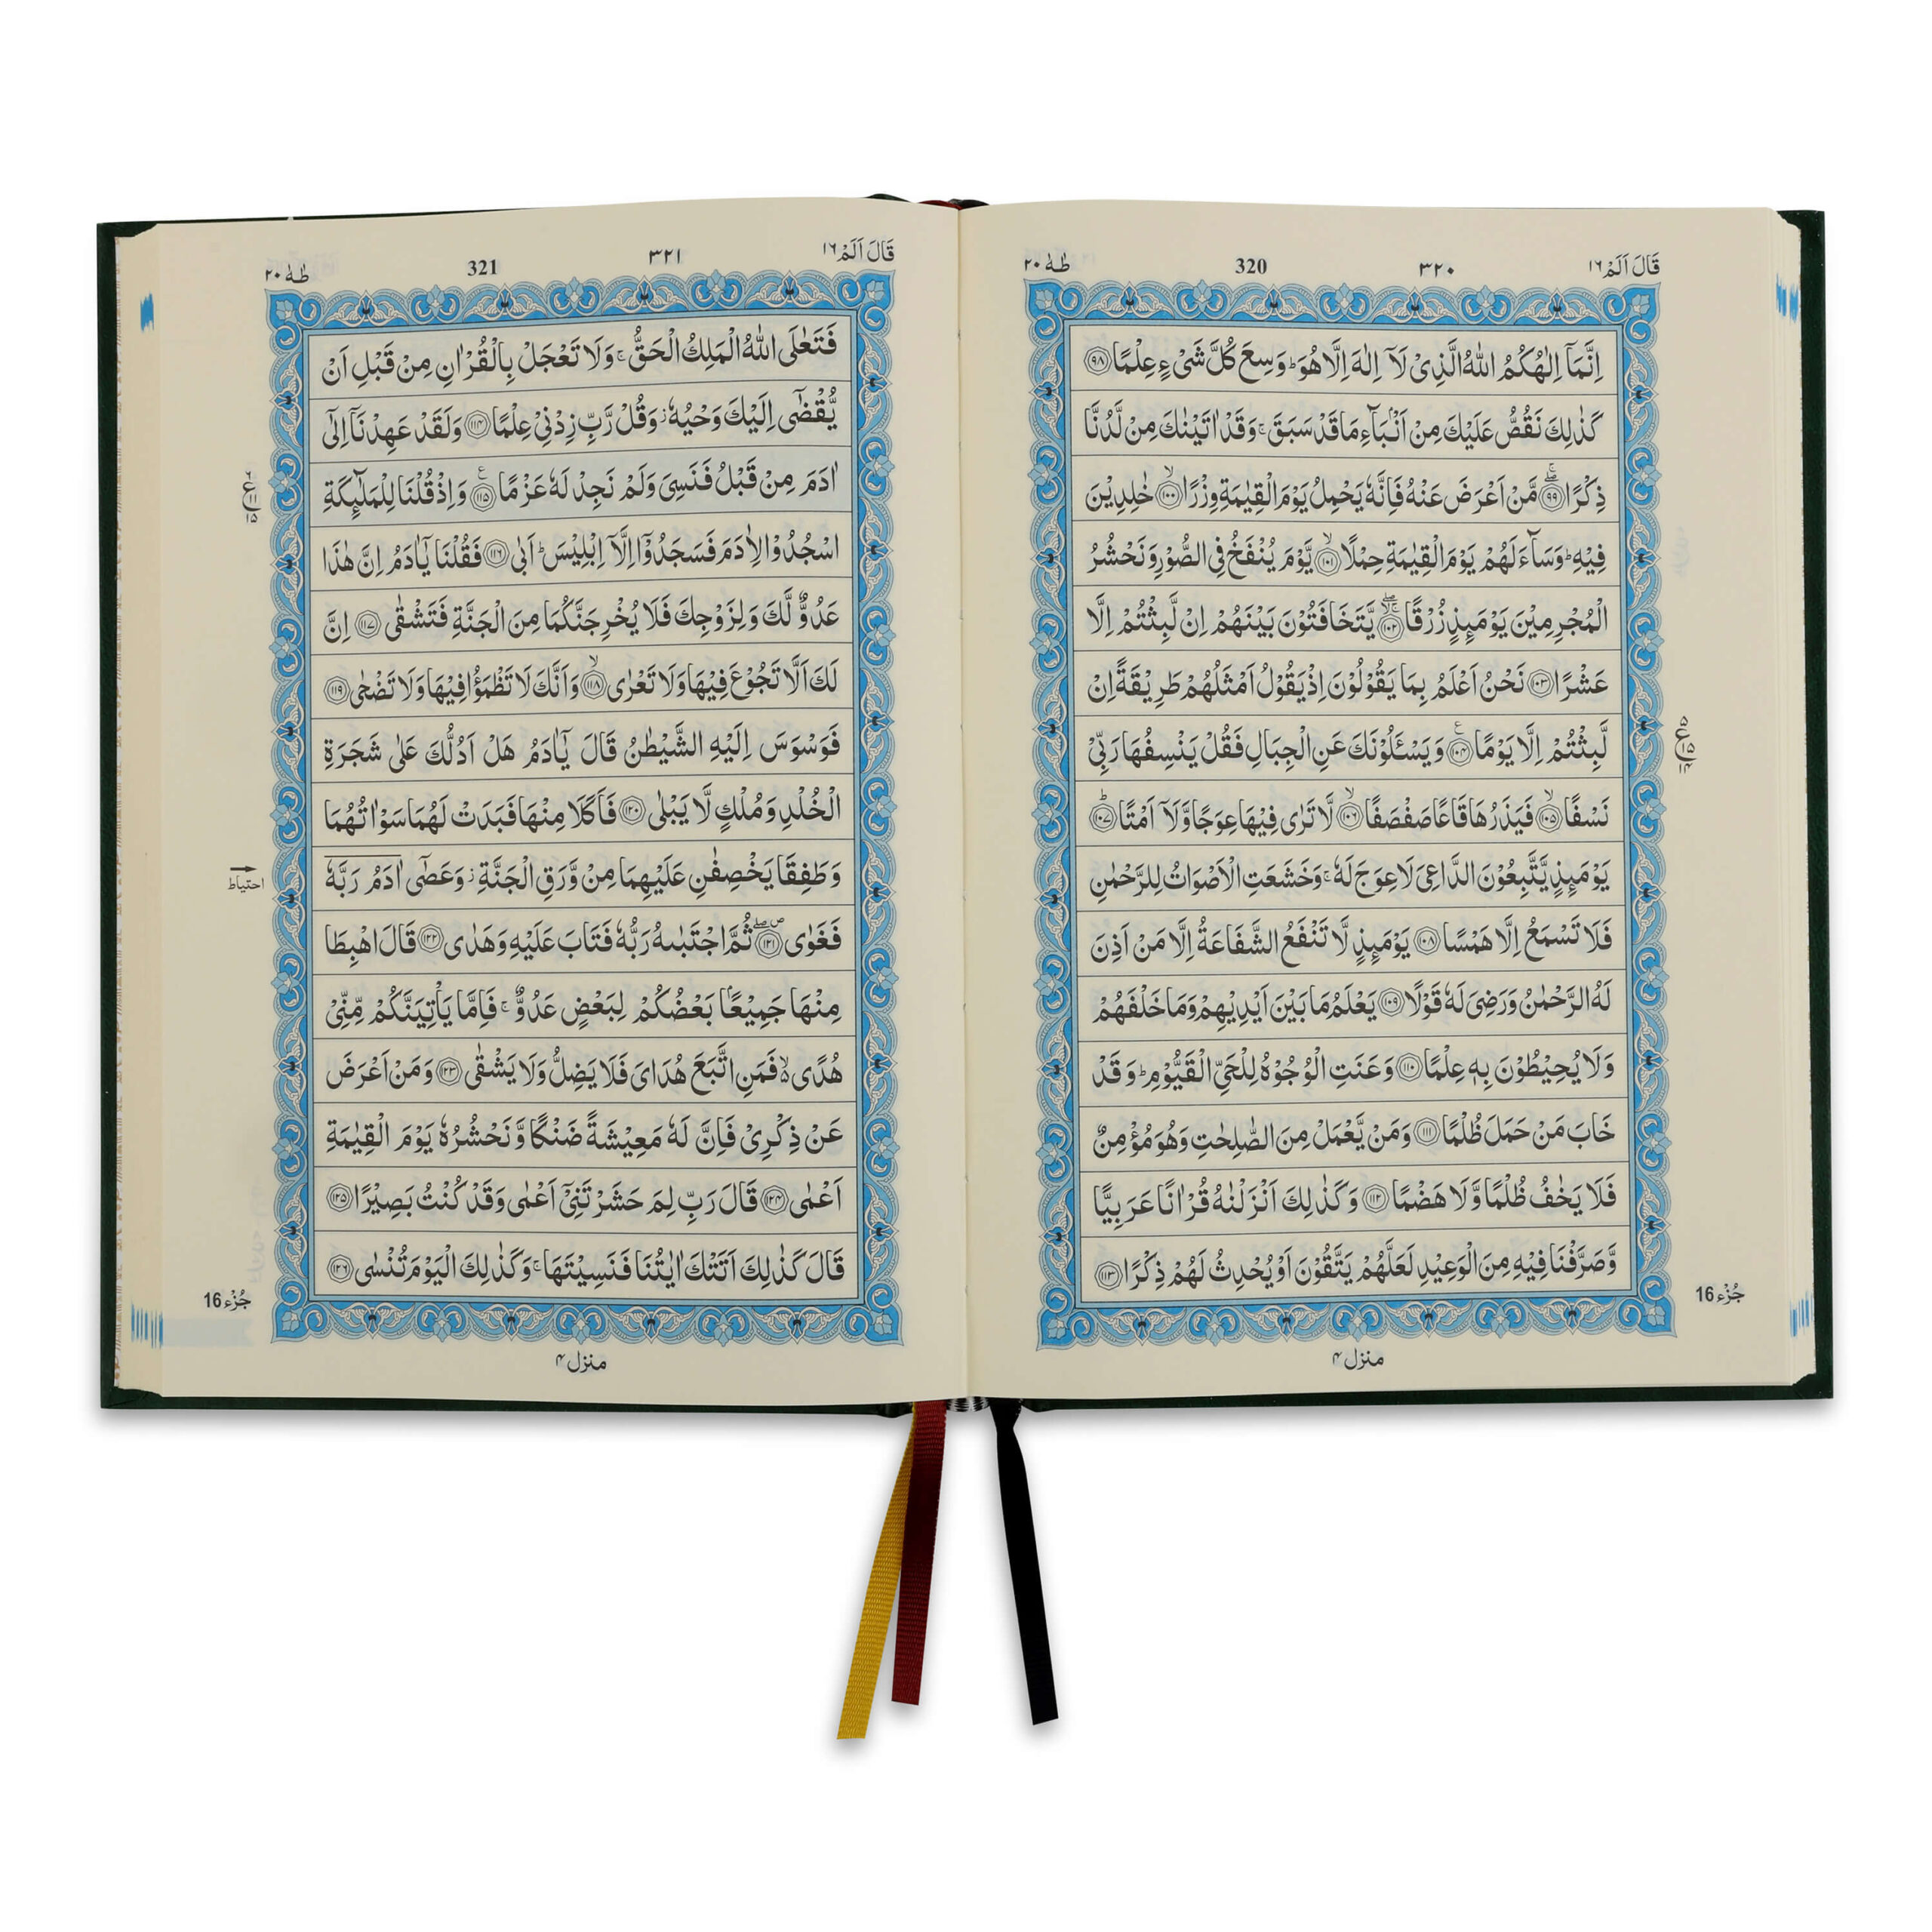 قَالَ اَلَمۡ ١٦
٣٢٠
320
طٰهٰ ٢٠
اِنَّمَاۤ اِلٰهُكُمُ اللّٰهُ الَّذِىۡ لَاۤ اِلٰهَ اِلَّا هُوَ ؕ وَسِعَ كُلَّ شَىۡءٍ عِلۡمًا ﴿٩٨﴾
كَذٰلِكَ نَقُصُّ عَلَيۡكَ مِنۡ اَنۡۢبَآءِ مَا قَدۡ سَبَقَ ۚ وَقَدۡ اٰتَيۡنٰكَ مِنۡ لَّدُنَّا
ذِكۡرًا ﴿٩٩﴾ مَّنۡ اَعۡرَضَ عَنۡهُ فَاِنَّهٗ يَحۡمِلُ يَوۡمَ الۡقِيٰمَةِ وِزۡرًا ﴿١٠٠﴾ خٰلِدِيۡنَ
فِيۡهِ ؕ وَسَآءَ لَهُمۡ يَوۡمَ الۡقِيٰمَةِ حِمۡلًا ﴿١٠١﴾ يَّوۡمَ يُنۡفَخُ فِى الصُّوۡرِ وَنَحۡشُرُ
الۡمُجۡرِمِيۡنَ يَوۡمَٮِٕذٍ زُرۡقًا ﴿١٠٢﴾ يَّتَخَافَتُوۡنَ بَيۡنَهُمۡ اِنۡ لَّبِثۡتُمۡ اِلَّا
عَشۡرًا ﴿١٠٣﴾ نَحۡنُ اَعۡلَمُ بِمَا يَقُوۡلُوۡنَ اِذۡ يَقُوۡلُ اَمۡثَلُهُمۡ طَرِيۡقَةً اِنۡ
لَّبِثۡتُمۡ اِلَّا يَوۡمًا ﴿١٠٤﴾ وَيَسۡــَٔلُوۡنَكَ عَنِ الۡجِبَالِ فَقُلۡ يَنۡسِفُهَا رَبِّىۡ
نَسۡفًا ﴿١٠٥﴾ فَيَذَرُهَا قَاعًا صَفۡصَفًا ﴿١٠٦﴾ لَّا تَرٰى فِيۡهَا عِوَجًا وَّلَاۤ اَمۡتًا ﴿١٠٧﴾
يَوۡمَٮِٕذٍ يَّتَّبِعُوۡنَ الدَّاعِىَ لَا عِوَجَ لَهٗ ۚ وَخَشَعَتِ الۡاَصۡوَاتُ لِلرَّحۡمٰنِ
فَلَا تَسۡمَعُ اِلَّا هَمۡسًا ﴿١٠٨﴾ يَوۡمَٮِٕذٍ لَّا تَنۡفَعُ الشَّفَاعَةُ اِلَّا مَنۡ اَذِنَ
لَهُ الرَّحۡمٰنُ وَرَضِىَ لَهٗ قَوۡلًا ﴿١٠٩﴾ يَعۡلَمُ مَا بَيۡنَ اَيۡدِيۡهِمۡ وَمَا خَلۡفَهُمۡ
وَلَا يُحِيۡطُوۡنَ بِهٖ عِلۡمًا ﴿١١٠﴾ وَعَنَتِ الۡوُجُوۡهُ لِلۡحَىِّ الۡقَيُّوۡمِ ؕ وَقَدۡ
خَابَ مَنۡ حَمَلَ ظُلۡمًا ﴿١١١﴾ وَمَنۡ يَّعۡمَلۡ مِنَ الصّٰلِحٰتِ وَهُوَ مُؤۡمِنٌ
فَلَا يَخٰفُ ظُلۡمًا وَّلَا هَضۡمًا ﴿١١٢﴾ وَكَذٰلِكَ اَنۡزَلۡنٰهُ قُرۡاٰنًا عَرَبِيًّا
وَّصَرَّفۡنَا فِيۡهِ مِنَ الۡوَعِيۡدِ لَعَلَّهُمۡ يَتَّقُوۡنَ اَوۡ يُحۡدِثُ لَهُمۡ ذِكۡرًا ﴿١١٣﴾
٥
ع
١٥
١٤
جُزْء 16
منزل ٤
قَالَ اَلَمۡ ١٦
٣٢١
321
طٰهٰ ٢٠
فَتَعٰلَى اللّٰهُ الۡمَلِكُ الۡحَقُّ ۚ وَلَا تَعۡجَلۡ بِالۡقُرۡاٰنِ مِنۡ قَبۡلِ اَنۡ
يُّقۡضٰٓى اِلَيۡكَ وَحۡيُهٗ ۫ وَقُلۡ رَّبِّ زِدۡنِىۡ عِلۡمًا ﴿١١٤﴾ وَلَقَدۡ عَهِدۡنَاۤ اِلٰٓى
اٰدَمَ مِنۡ قَبۡلُ فَنَسِىَ وَلَمۡ نَجِدۡ لَهٗ عَزۡمًا ﴿١١٥﴾ وَاِذۡ قُلۡنَا لِلۡمَلٰٓٮِٕكَةِ
اسۡجُدُوۡا لِاٰدَمَ فَسَجَدُوۡۤا اِلَّاۤ اِبۡلِيۡسَ ؕ اَبٰى ﴿١١٦﴾ فَقُلۡنَا يٰۤاٰدَمُ اِنَّ هٰذَا
عَدُوٌّ لَّكَ وَلِزَوۡجِكَ فَلَا يُخۡرِجَنَّكُمَا مِنَ الۡجَنَّةِ فَتَشۡقٰى ﴿١١٧﴾ اِنَّ
لَكَ اَلَّا تَجُوۡعَ فِيۡهَا وَلَا تَعۡرٰى ﴿١١٨﴾ وَاَنَّكَ لَا تَظۡمَؤُا فِيۡهَا وَلَا تَضۡحٰى ﴿١١٩﴾
فَوَسۡوَسَ اِلَيۡهِ الشَّيۡطٰنُ قَالَ يٰۤاٰدَمُ هَلۡ اَدُلُّكَ عَلٰى شَجَرَةِ
الۡخُلۡدِ وَمُلۡكٍ لَّا يَبۡلٰى ﴿١٢٠﴾ فَاَكَلَا مِنۡهَا فَبَدَتۡ لَهُمَا سَوۡاٰتُهُمَا
وَطَفِقَا يَخۡصِفٰنِ عَلَيۡهِمَا مِنۡ وَّرَقِ الۡجَنَّةِ ۫ وَعَصٰٓى اٰدَمُ رَبَّهٗ
فَغَوٰى ﴿١٢١﴾ ثُمَّ اجۡتَبٰٮهُ رَبُّهٗ فَتَابَ عَلَيۡهِ وَهَدٰى ﴿١٢٢﴾ قَالَ اهۡبِطَا
مِنۡهَا جَمِيۡعًاۢ بَعۡضُكُمۡ لِبَعۡضٍ عَدُوٌّ ۚ فَاِمَّا يَاۡتِيَنَّكُمۡ مِّنِّىۡ
هُدًى ۙ فَمَنِ اتَّبَعَ هُدَاىَ فَلَا يَضِلُّ وَلَا يَشۡقٰى ﴿١٢٣﴾ وَمَنۡ اَعۡرَضَ
عَنۡ ذِكۡرِىۡ فَاِنَّ لَهٗ مَعِيۡشَةً ضَنۡكًا وَّنَحۡشُرُهٗ يَوۡمَ الۡقِيٰمَةِ
اَعۡمٰى ﴿١٢٤﴾ قَالَ رَبِّ لِمَ حَشَرۡتَنِىۡۤ اَعۡمٰى وَقَدۡ كُنۡتُ بَصِيۡرًا ﴿١٢٥﴾
قَالَ كَذٰلِكَ اَتَتۡكَ اٰيٰتُنَا فَنَسِيۡتَهَا ۚ وَكَذٰلِكَ الۡيَوۡمَ تُنۡسٰى ﴿١٢٦﴾
ع
١١
١٥
احتیاط
جُزْء 16
منزل ٤